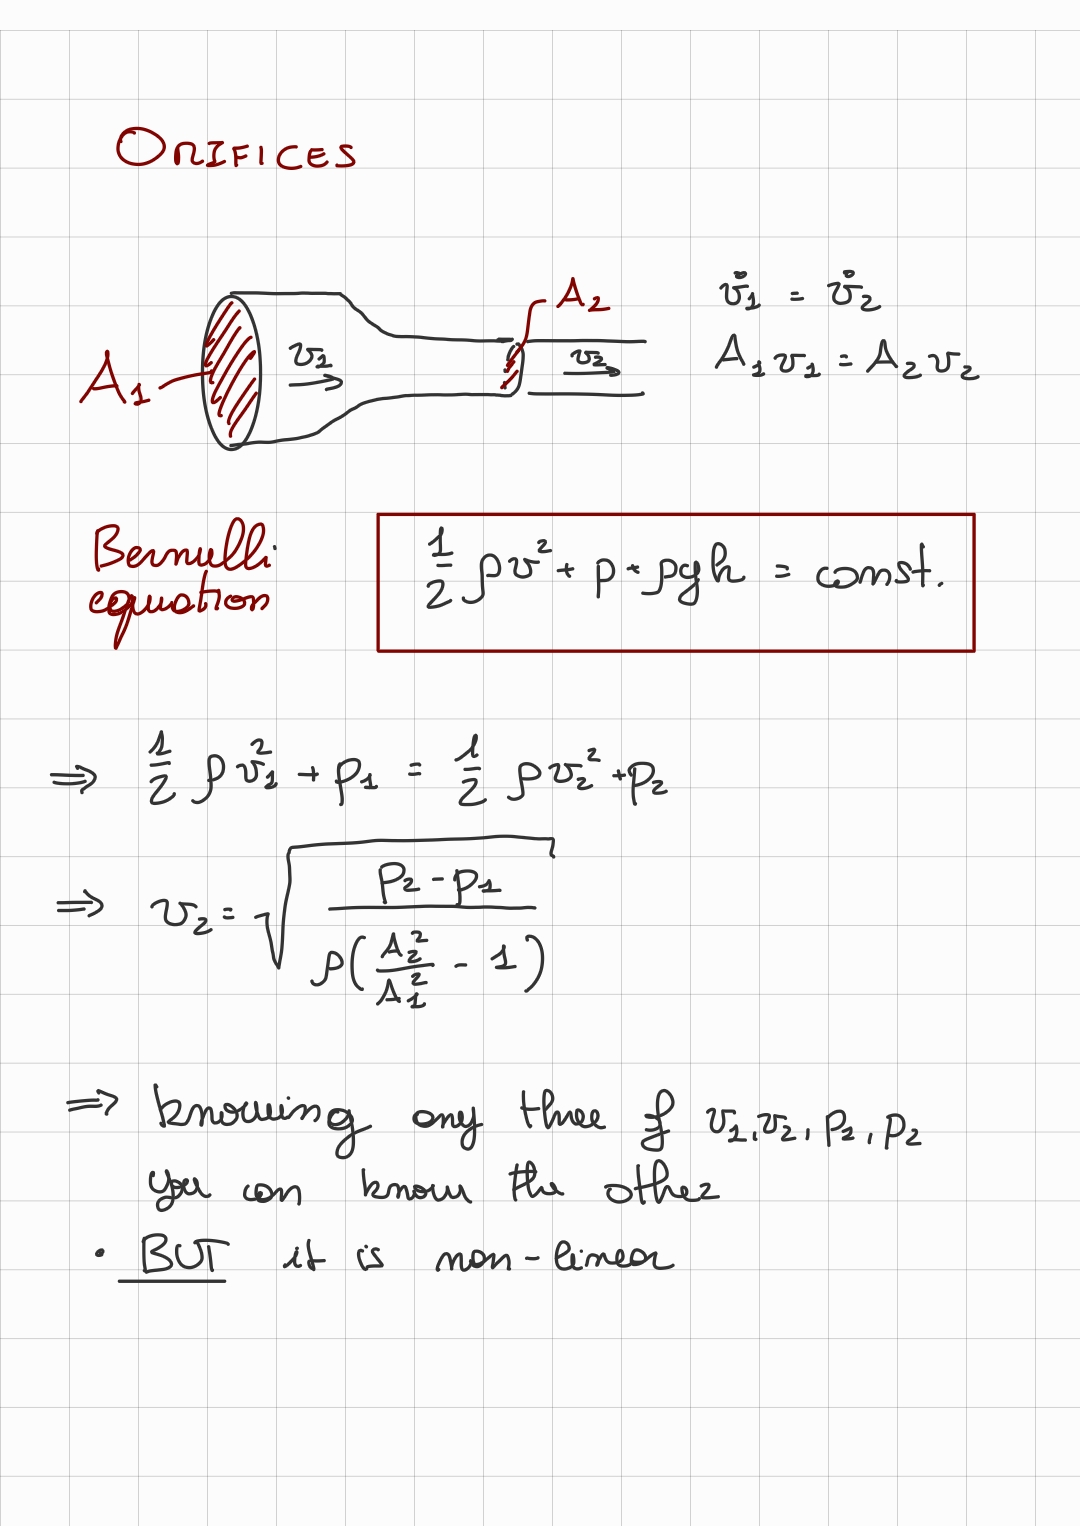 ORIFICES
A₂
v̊₁ = v̊₂
A₁ v₁ v₂ A₁v₁ = A₂v₂
Bernulli
equation
½ ρv² + p + ρgh = const.
⇒ ½ ρv₁² + p₁ = ½ ρv₂² + p₂
⇒ v₂ = √((P₂ - p₁) / (ρ(A₂²/A₁² - 1)))
⇒ knowing any three of v₁, v₂, P₁, P₂
you can know the other
• BUT it is non-linear